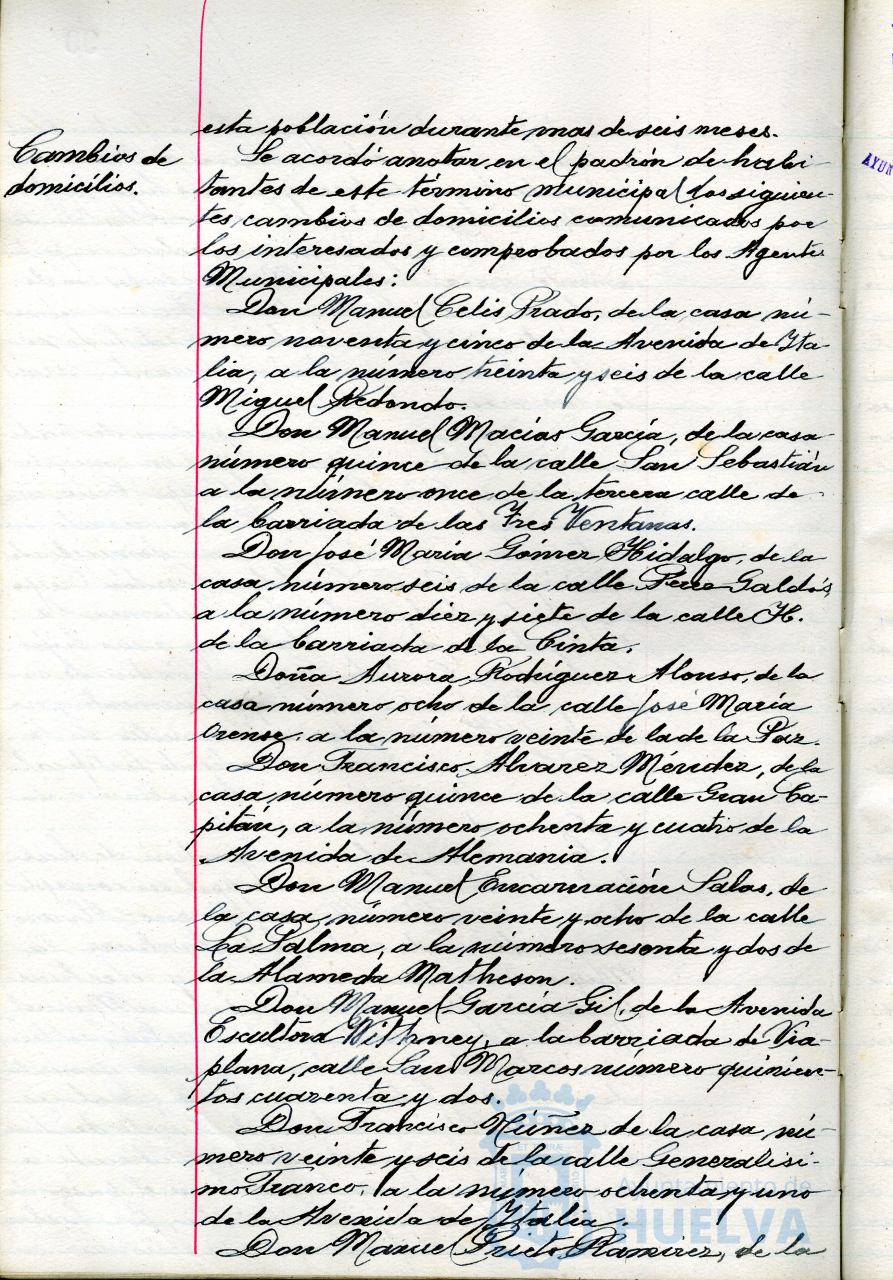 esta población durante mas de seis meses.
Cambios de
domicilios.
Se acordó anotar en el padrón de habi-
tantes de este término municipal los siguien-
tes cambios de domicilios comunicados por
los interesados y comprobados por los Agentes
Municipales:
Don Manuel Celis Prado, de la casa nú-
mero noventa y cinco de la Avenida de Ita-
lia, a la número treinta y seis de la calle
Miguel Redondo.
Don Manuel Macías García, de la casa
número quince de la calle San Sebastián
a la número once de la tercera calle de
la barriada de las Tres Ventanas.
Don José María Gómez Hidalgo, de la
casa número seis de la calle Perez Galdós,
a la número diez y siete de la calle H.
de la barriada de la Cinta.
Doña Aurora Rodríguez Alonso, de la
casa número ocho de la calle José María
Orense, a la número veinte de la de la Paz.
Don Francisco Alvarez Méndez, de la
casa número quince de la calle Gran Ca-
pitán, a la número ochenta y cuatro de la
Avenida de Alemania.
Don Manuel Encarnación Salas, de
la casa número veinte y ocho de la calle
La Palma, a la número sesenta y dos de
la Alameda Matheson.
Don Manuel García Gil, de la Avenida
Escultora Withney, a la barriada de Via-
plana, calle San Marcos número quinien-
tos cuarenta y dos.
Don Francisco Núñez de la casa nú-
mero veinte y seis de la calle Generalísi-
mo Franco, a la número ochenta y uno
de la Avenida de Italia.
Don Manuel Prieto Ramirez, de la
Ayuntamiento de
HUELVA
AYUN